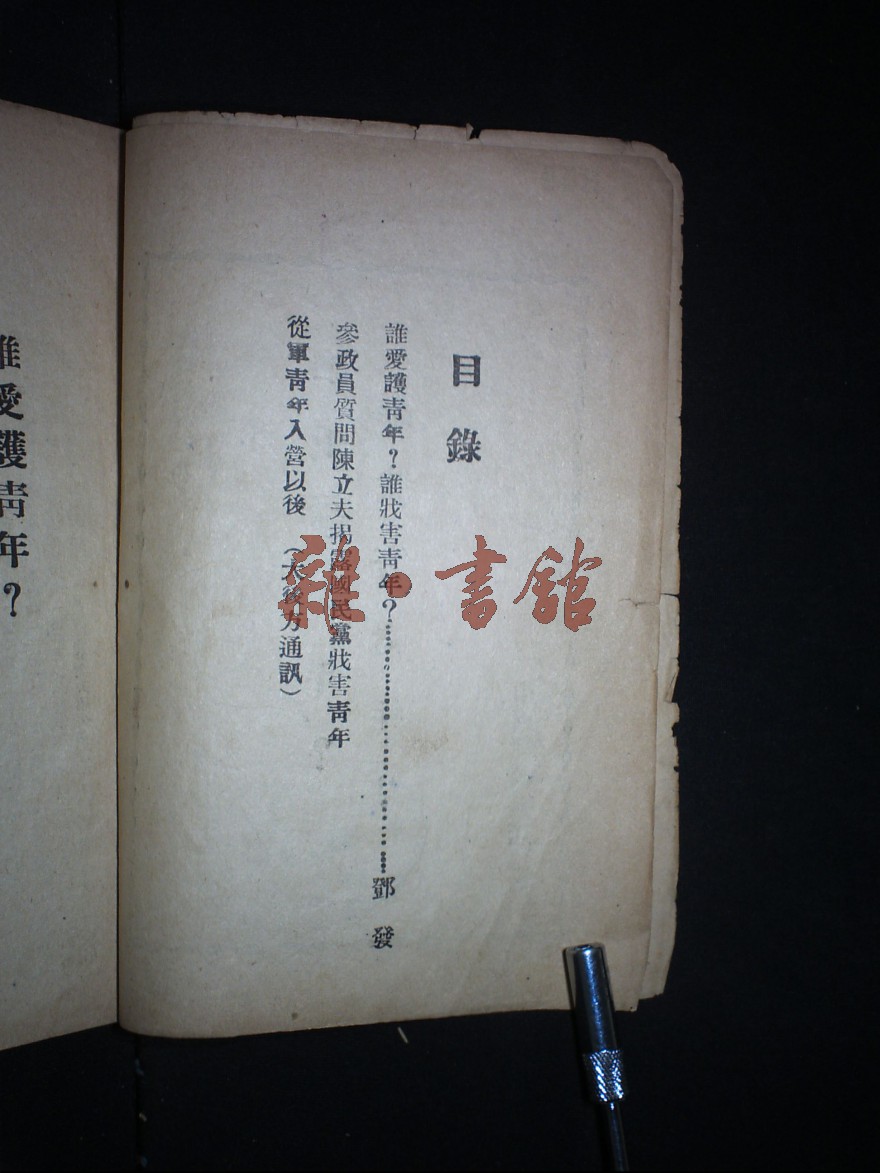 目錄
誰愛護青年？誰戕害青年？……鄧發
參政員質問陳立夫揭露國民黨戕害青年
從軍青年入營以後（大後方通訊）
誰愛護青年？
雜·書館